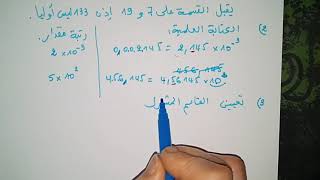 يقبل القسمة على 7 و 19 إذن 133 ليس أوليا.
2) الكتابة العلمية: رتبة مقدار.
0,002145 = 2,145 × 10⁻³ 2 × 10⁻³
456,145 = 4,56145 × 10² 5 × 10²
3) تعيين القاسم المشترك